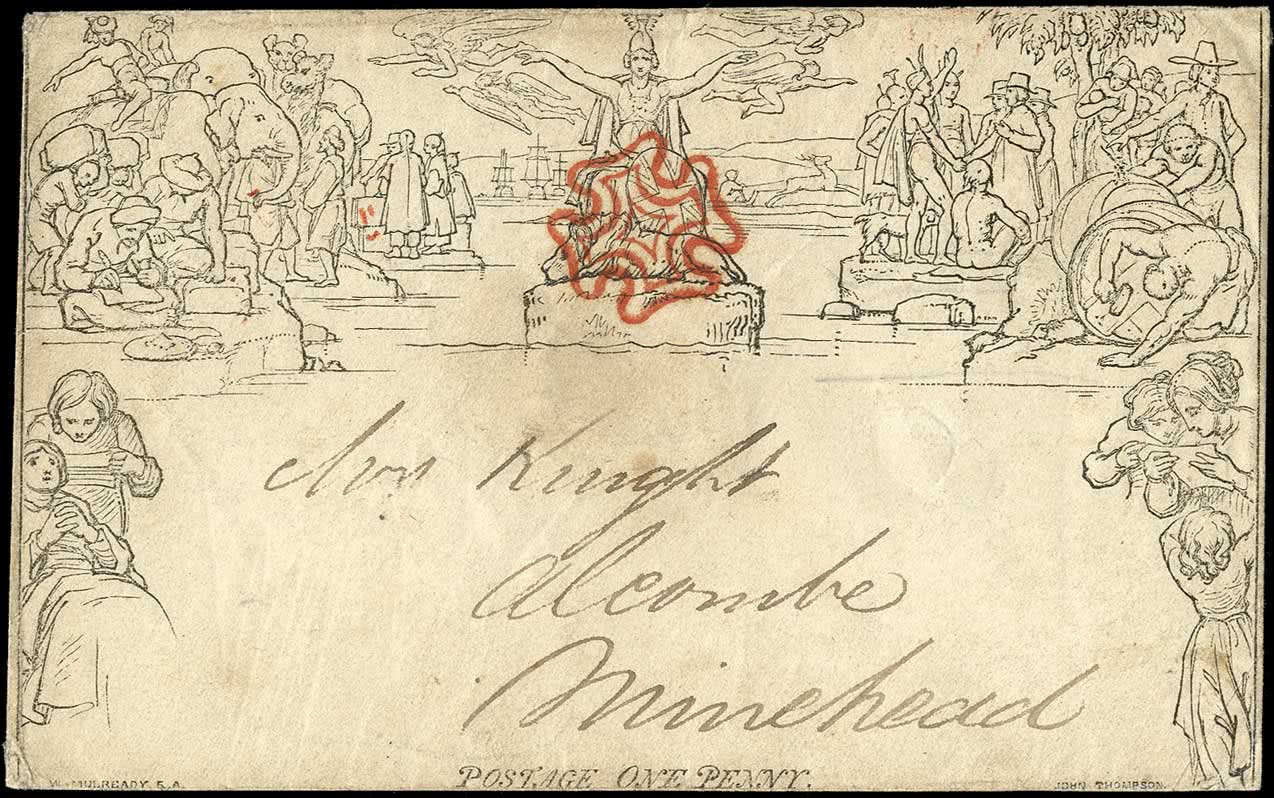 Mrs Knight
Alcombe
Minehead
W. MULREADY. R.A.
POSTAGE ONE PENNY.
JOHN THOMPSON.